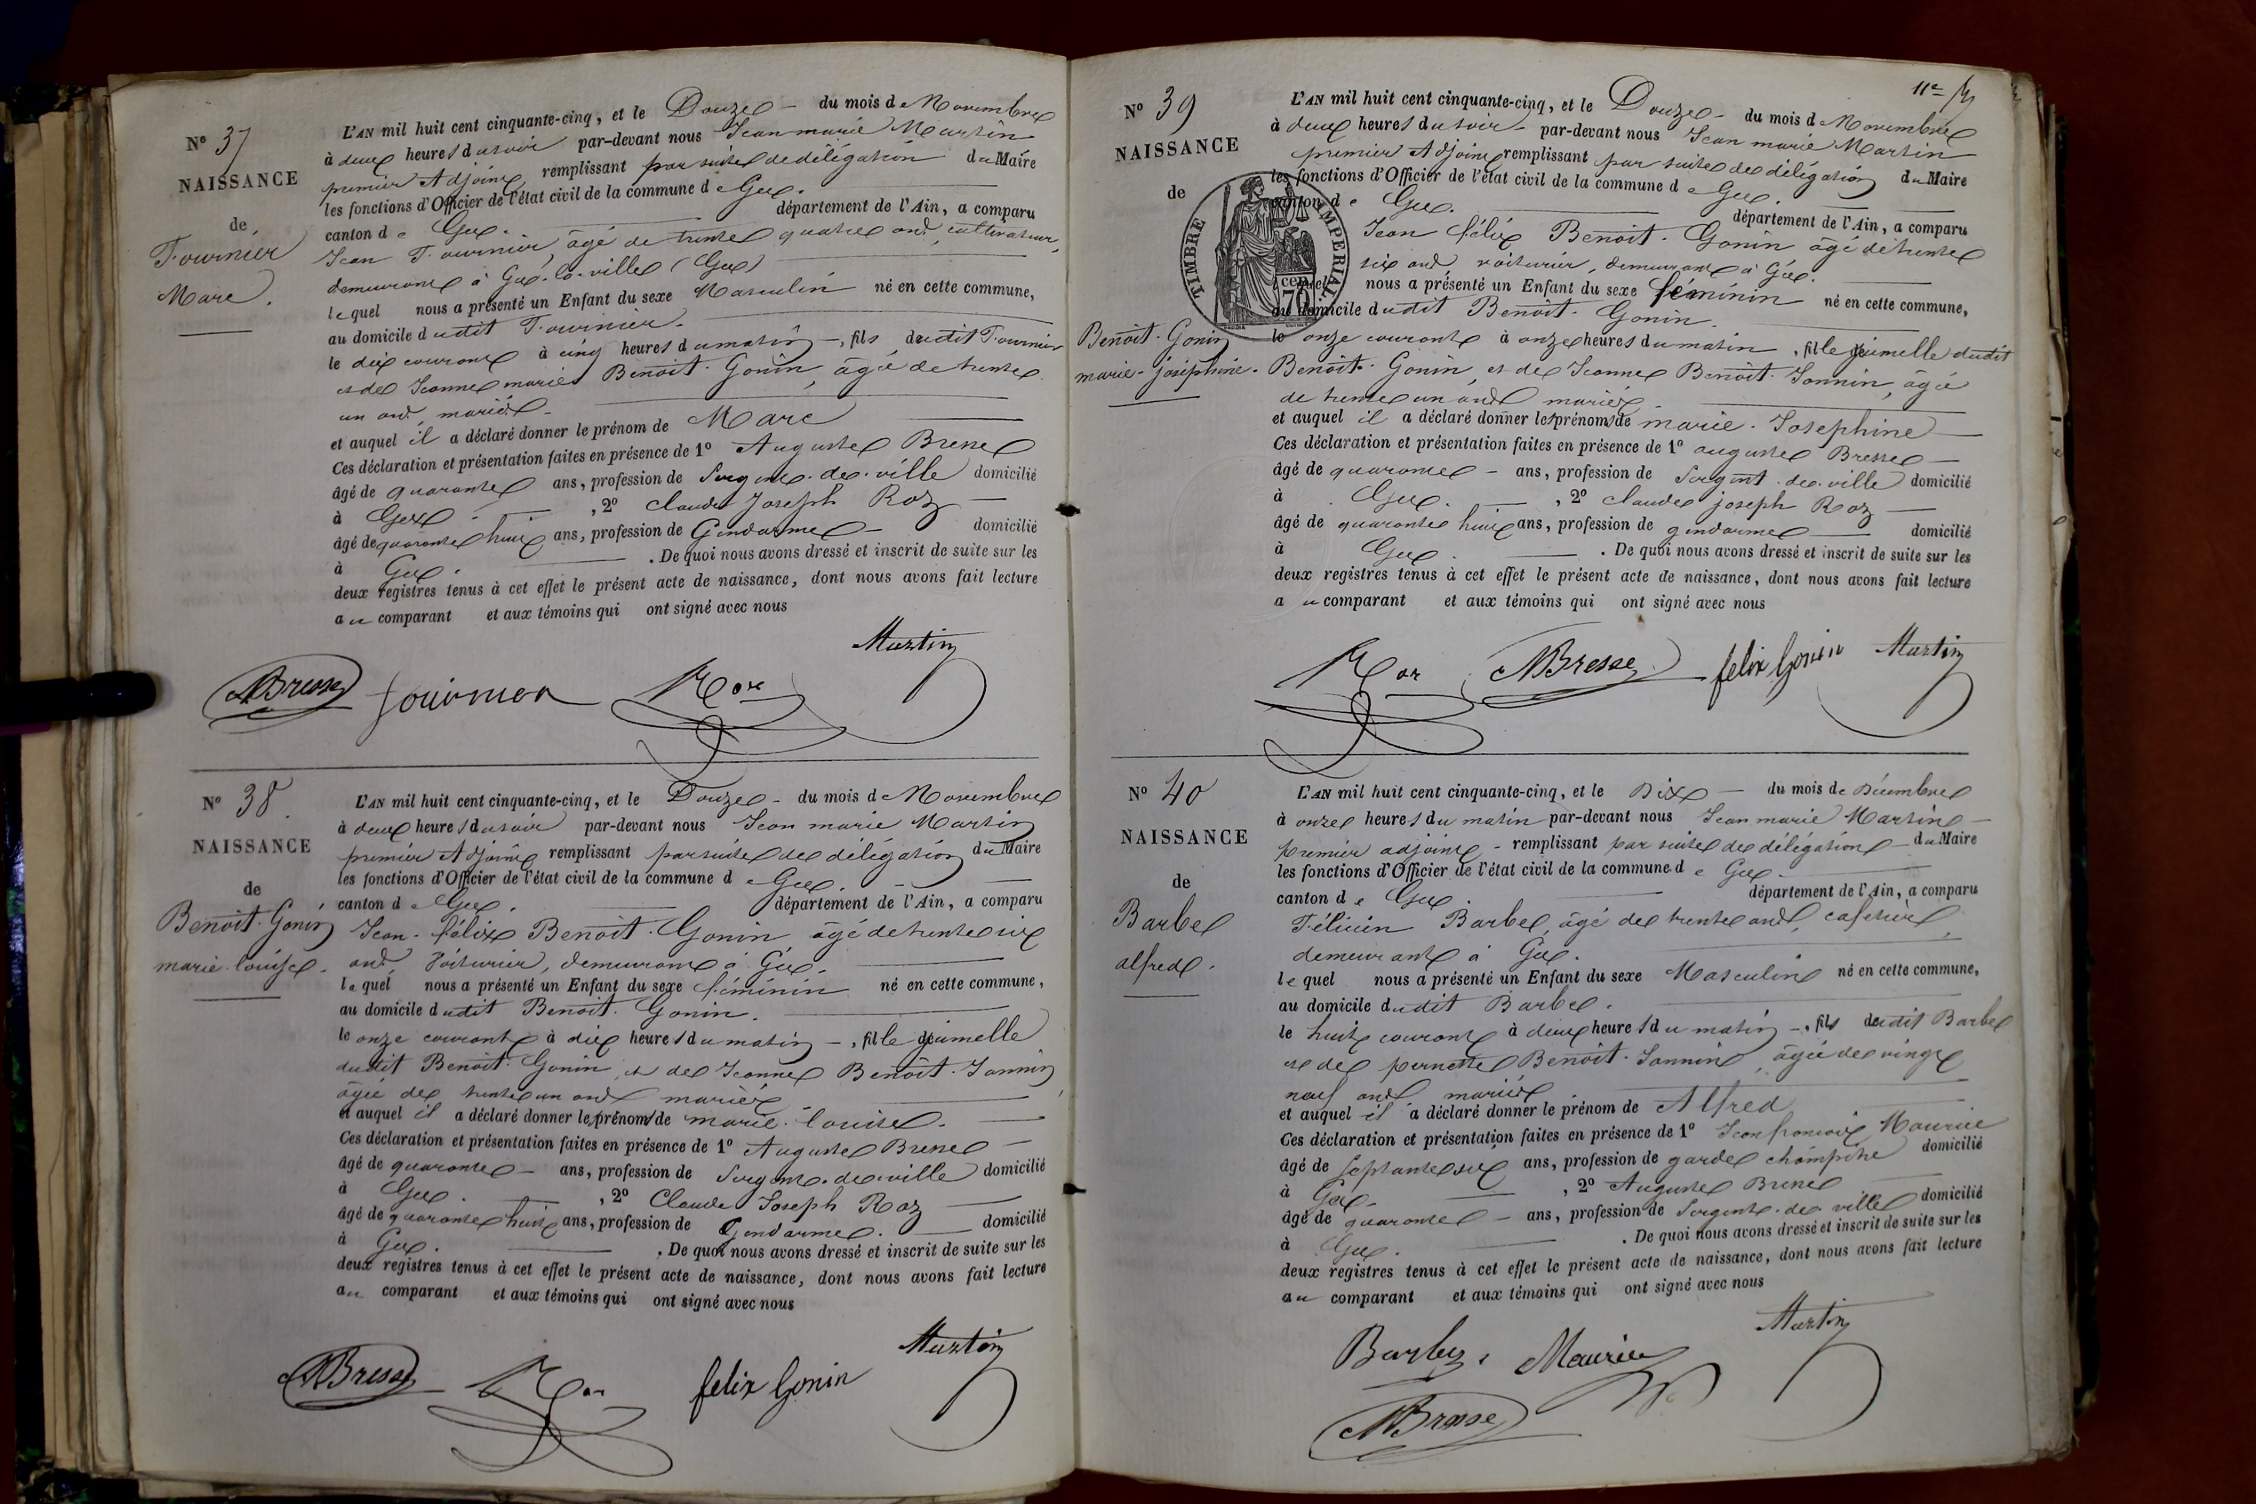 N° 37
NAISSANCE
de
Fournier
Marc.
L'AN mil huit cent cinquante-cinq, et le Douze - du mois de Novembre
à deux heures du soir par-devant nous Jean marie Martin
premier Adjoint remplissant par suite de délégation du Maire
les fonctions d'Officier de l'état civil de la commune de Gex.
canton de Gex. département de l'Ain, a comparu
Jean Fournier, âgé de trente quatre ans, cultivateur,
demeurant à Gex-la-ville (Gex)
lequel nous a présenté un Enfant du sexe Masculin né en cette commune,
au domicile dudit Fournier.
le dix courant à cinq heures du matin -, fils dudit Fournier
et de Jeanne marie Benoit-Gonin, âgée de trente
un ans, mariés.
et auquel il a déclaré donner le prénom de Marc
Ces déclaration et présentation faites en présence de 1° Auguste Bresse
âgé de quarante ans, profession de Sergent-de-ville domicilié
à Gex. , 2° claude Joseph Roz
âgé de quarante huit ans, profession de Gendarme - domicilié
à Gex. . De quoi nous avons dressé et inscrit de suite sur les
deux registres tenus à cet effet le présent acte de naissance, dont nous avons fait lecture
au comparant et aux témoins qui ont signé avec nous
Martin
ABresse fournier Roz
N° 38.
NAISSANCE
de
Benoit-Gonin
marie-louise.
L'AN mil huit cent cinquante-cinq, et le Douze - du mois de Novembre
à deux heures du soir par-devant nous Jean marie Martin
premier Adjoint remplissant par suite de délégation du Maire
les fonctions d'Officier de l'état civil de la commune de Gex.
canton de Gex. département de l'Ain, a comparu
Jean-félix Benoit-Gonin, âgé de trente six
ans, Voiturier, demeurant à Gex.
lequel nous a présenté un Enfant du sexe féminin né en cette commune,
au domicile dudit Benoit-Gonin.
le onze courant à dix heures du matin -, fille jumelle
dudit Benoit-Gonin, et de Jeanne Benoit-Jannin,
âgée de trente un ans mariés
et auquel il a déclaré donner les prénoms de marie-louise.
Ces déclaration et présentation faites en présence de 1° Auguste Bresse
âgé de quarante - ans, profession de Sergent-de-ville domicilié
à Gex. , 2° Claude Joseph Roz
âgé de quarante huit ans, profession de Gendarme. domicilié
à Gex. . De quoi nous avons dressé et inscrit de suite sur les
deux registres tenus à cet effet le présent acte de naissance, dont nous avons fait lecture
au comparant et aux témoins qui ont signé avec nous
Martin
ABresse Roz felix Gonin
11e
N° 39
NAISSANCE
de
TIMBRE IMPERIAL
cent
70
Benoit-Gonin
marie-joséphine.
L'AN mil huit cent cinquante-cinq, et le Douze - du mois de Novembre
à deux heures du soir - par-devant nous Jean marie Martin
premier Adjoint remplissant par suite de délégation du Maire
les fonctions d'Officier de l'état civil de la commune de Gex.
canton de Gex. département de l'Ain, a comparu
Jean félix Benoit-Gonin âgé de trente
six ans voiturier, demeurant à Gex.
lequel nous a présenté un Enfant du sexe féminin né en cette commune,
au domicile dudit Benoit-Gonin.
le onze courant à onze heures du matin, fille jumelle dudit
Benoit-Gonin, et de Jeanne Benoit-Jannin, âgée
de trente un ans mariés
et auquel il a déclaré donner les prénoms de marie-Josephine
Ces déclaration et présentation faites en présence de 1° auguste Bresse
âgé de quarante - ans, profession de Sergent-de-ville domicilié
à Gex. , 2° claude joseph Roz
âgé de quarante huit ans, profession de gendarme domicilié
à Gex. . De quoi nous avons dressé et inscrit de suite sur les
deux registres tenus à cet effet le présent acte de naissance, dont nous avons fait lecture
au comparant et aux témoins qui ont signé avec nous
Roz ABresse felix Gonin Martin
N° 40
NAISSANCE
de
Barbe
alfred.
L'AN mil huit cent cinquante-cinq, et le Dix - du mois de Décembre
à onze heures du matin par-devant nous Jean marie Martin
premier adjoint - remplissant par suite de délégation du Maire
les fonctions d'Officier de l'état civil de la commune de Gex.
canton de Gex. département de l'Ain, a comparu
Félicien Barbe, âgé de trente ans, cafetier,
demeurant à Gex.
lequel nous a présenté un Enfant du sexe Masculin né en cette commune,
au domicile dudit Barbe.
le huit courant à deux heures du matin -, fils dudit Barbe
et de pernette Benoit-Jannin, âgée de vingt
neuf ans mariés
et auquel il a déclaré donner le prénom de Alfred
Ces déclaration et présentation faites en présence de 1° Jean françois Maurice
âgé de septante six ans, profession de garde champêtre domicilié
à Gex. , 2° Auguste Bresse
âgé de quarante - ans, profession de Sergent-de-ville domicilié
à Gex. . De quoi nous avons dressé et inscrit de suite sur les
deux registres tenus à cet effet le présent acte de naissance, dont nous avons fait lecture
au comparant et aux témoins qui ont signé avec nous
Martin
Maurice
ABresse